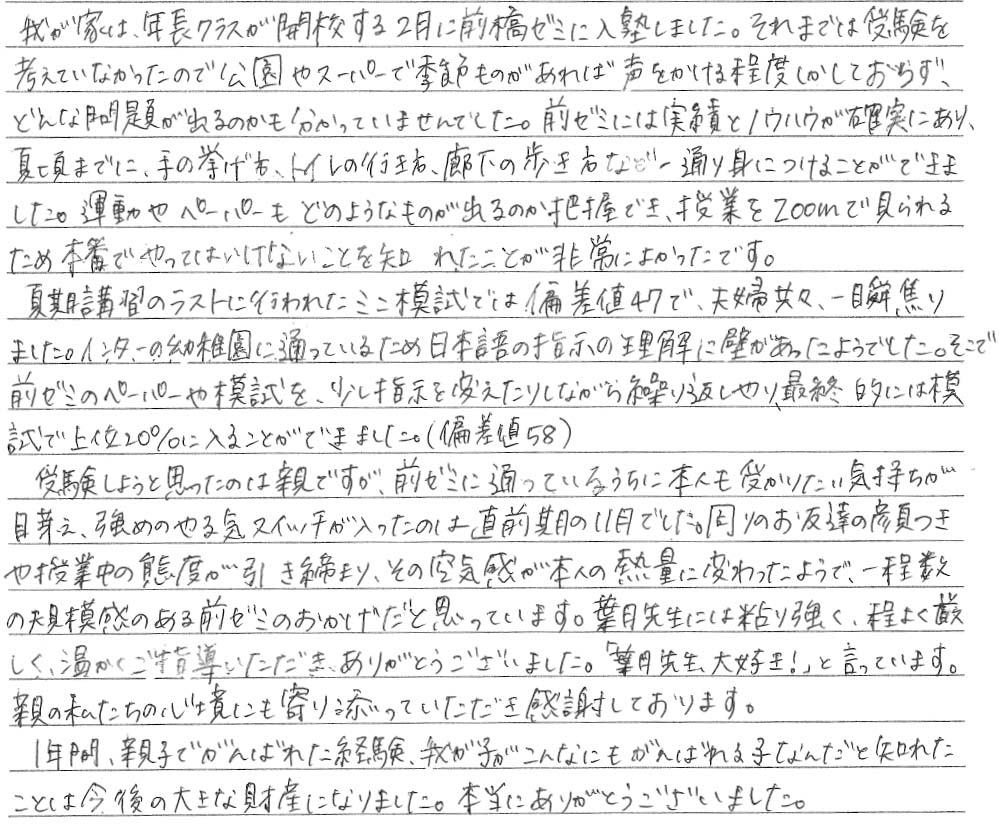 我が家は、年長クラスが開校する2月に前橋ゼミに入塾しました。それまでは受験を
考えていなかったので公園やスーパーで季節ものがあれば声をかける程度しかしておらず、
どんな問題が出るのかも分かっていませんでした。前ゼミには実績とノウハウが確実にあり、
夏頃までに、手の挙げ方、トイレの行き方、廊下の歩き方など一通り身につけることができま
した。運動やペーパーもどのようなものが出るのか把握でき、授業をZoomで見られる
ため本番でやってはいけないことを知れたことが非常によかったです。
夏期講習のラストに行われたミニ模試では偏差値47で、夫婦共々、一瞬焦り
ました。インターの幼稚園に通っているため日本語の指示の理解に壁があったようでした。そこで
前ゼミのペーパーや模試を、少し指示を変えたりしながら繰り返しやり、最終的には模
試で上位20%に入ることができました。(偏差値58)
受験しようと思ったのは親ですが、前ゼミに通っているうちに本人も受かりたい気持ちが
目芽え、強めのやる気スイッチが入ったのは直前期の11月でした。周りのお友達の顔つき
や授業中の態度が引き締まり、その空気感が本人の熱量に変わったようで、一程数
の規模感のある前ゼミのおかげだと思っています。葉月先生には粘り強く、程よく厳
しく、温かくご指導いただき、ありがとうございました。「葉月先生、大好き!」と言っています。
親の私たちの心境にも寄り添っていただき感謝しております。
1年間、親子でがんばれた経験、我が子がこんなにもがんばれる子なんだと知れた
ことは今後の大きな財産になりました。本当にありがとうございました。